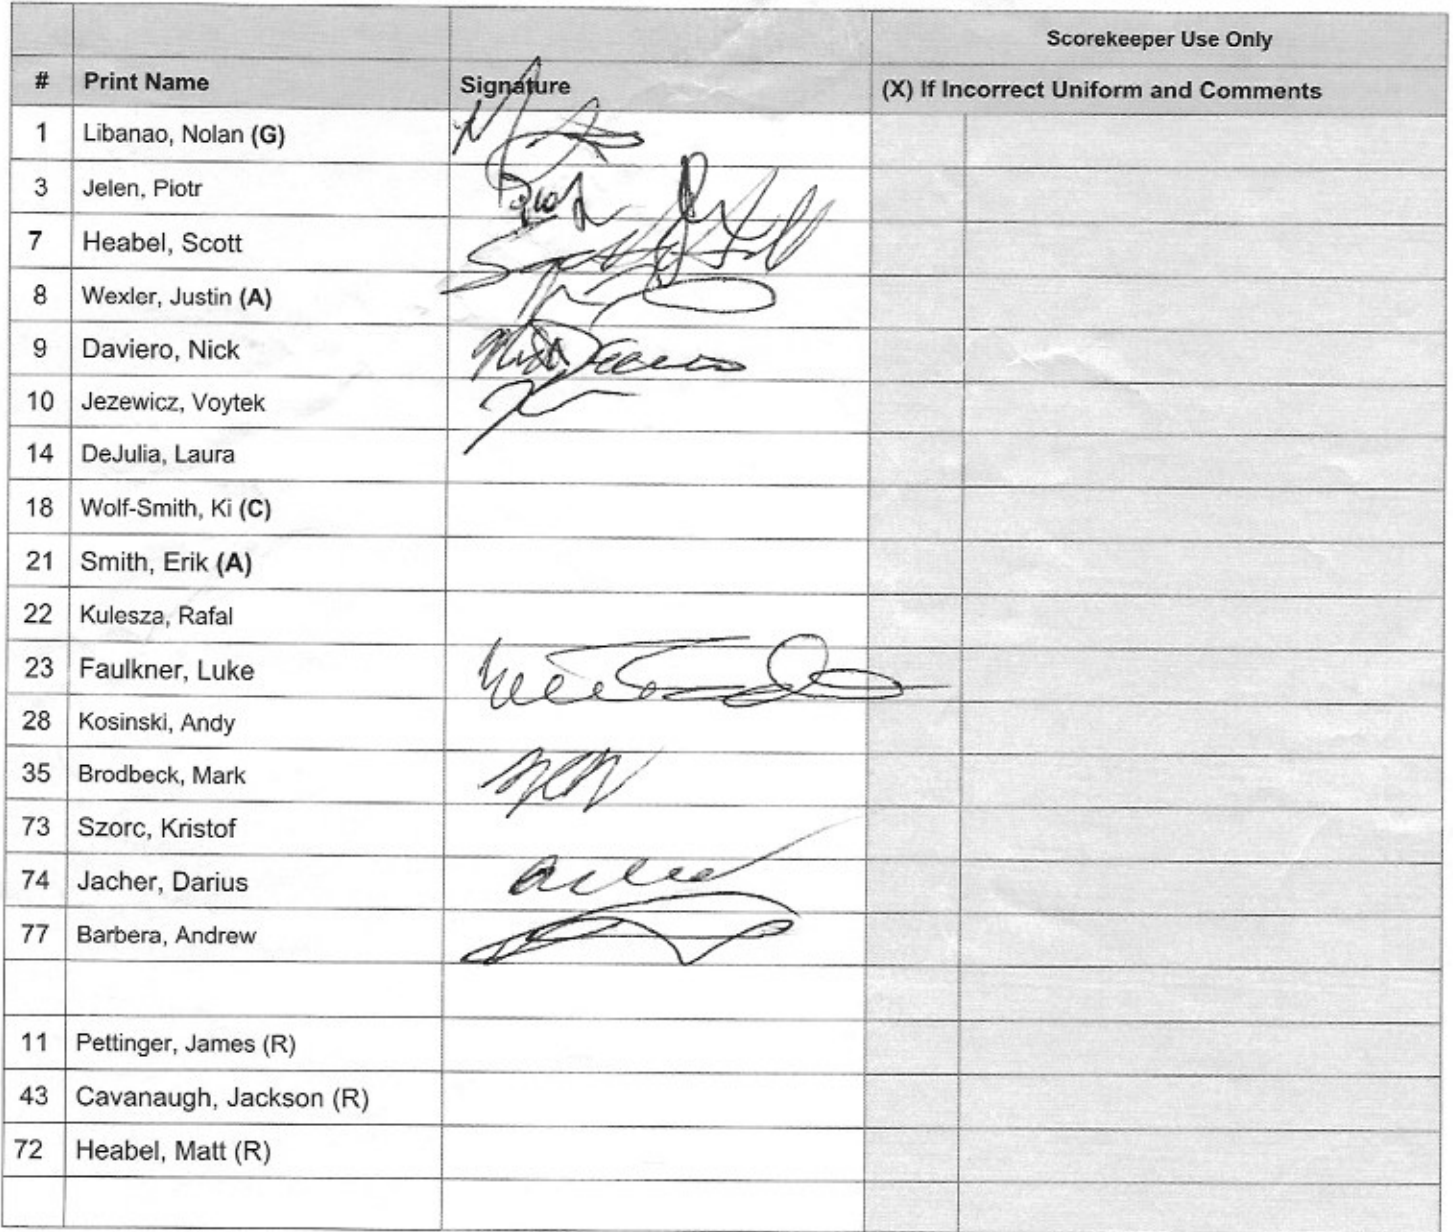 Scorekeeper Use Only
# Print Name Signature (X) If Incorrect Uniform and Comments
1 Libanao, Nolan (G)
3 Jelen, Piotr Piotr
7 Heabel, Scott
8 Wexler, Justin (A)
9 Daviero, Nick Nick Daviero
10 Jezewicz, Voytek
14 DeJulia, Laura
18 Wolf-Smith, Ki (C)
21 Smith, Erik (A)
22 Kulesza, Rafal
23 Faulkner, Luke
28 Kosinski, Andy
35 Brodbeck, Mark
73 Szorc, Kristof
74 Jacher, Darius
77 Barbera, Andrew
11 Pettinger, James (R)
43 Cavanaugh, Jackson (R)
72 Heabel, Matt (R)